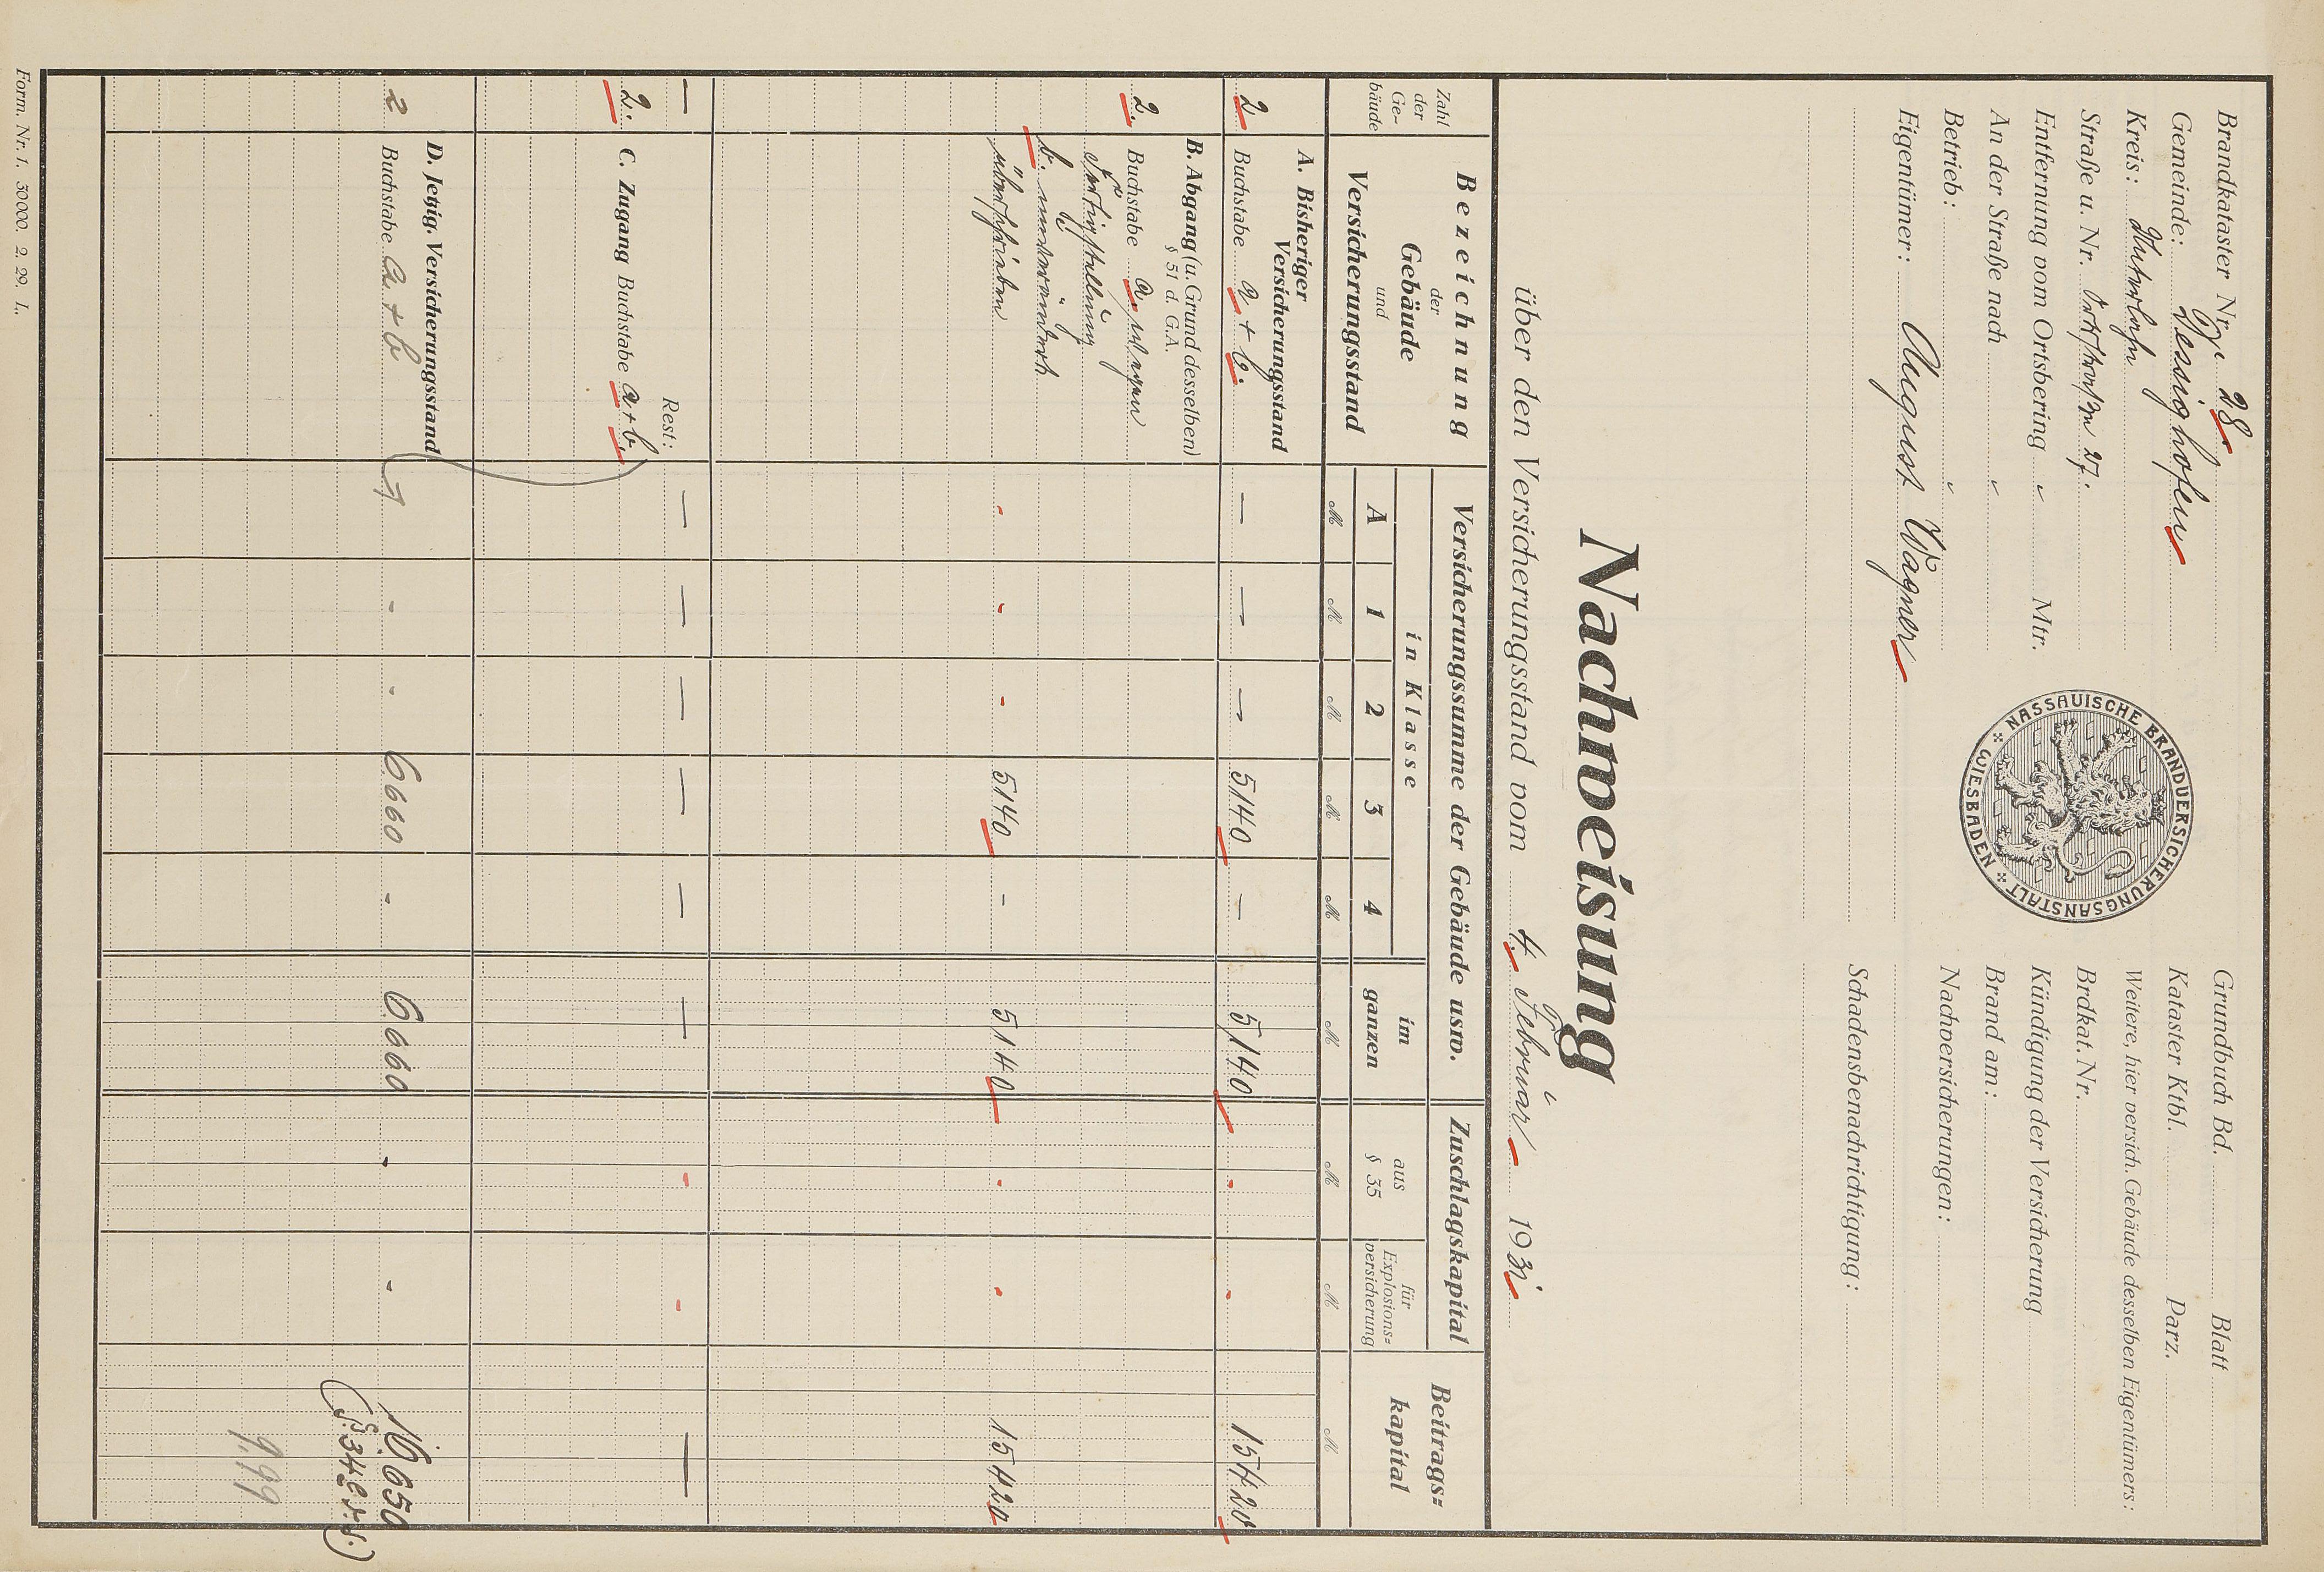 Brandkataster Nr. 28.
Gemeinde: Dessighofen
Kreis: Unterlahn
Straße u. Nr. Ortsstraße 27.
Entfernung vom Ortsbering „ Mtr.
An der Straße nach „
Betrieb: „
Eigentümer: August Wagner
NASSAUISCHE BRANDVERSICHERUNGSANSTALT
WIESBADEN
Grundbuch Bd. Blatt
Kataster Ktbl. Parz.
Weitere, hier versich. Gebäude desselben Eigentümers:
Brdkat. Nr.
Kündigung der Versicherung
Brand am:
Nachversicherungen:
Schadensbenachrichtigung:
Nachweisung
über den Versicherungsstand vom 4. Februar 1931
Zahl der Ge-bäude
Bezeichnung
der
Gebäude
und
Versicherungsstand
Versicherungssumme der Gebäude usw.
in Klasse
A 1 2 3 4
im ganzen
Zuschlagskapital
aus § 35
für Explosions-versicherung
Beitrags-kapital
M M M M M M M M M
A. Bisheriger
Versicherungsstand
2 Buchstabe a + b. — — — 5140 — 5140 - - 15420
B. Abgang (u. Grund desselben)
§ 51 d. G.A.
2. Buchstabe a. wegen
Fertigstellung
b. unverändert
überschrieben - - - 5140 - 5140 - - 15420
— Rest: — — — — — — - - —
2. C. Zugang Buchstabe a + b.
D. Jetzig. Versicherungsstand
2 Buchstabe a + b - - 6660 - 6660 - - 16650
(§ 34 e d. S.)
9.99
Form. Nr. 1. 30000. 2. 29. L.